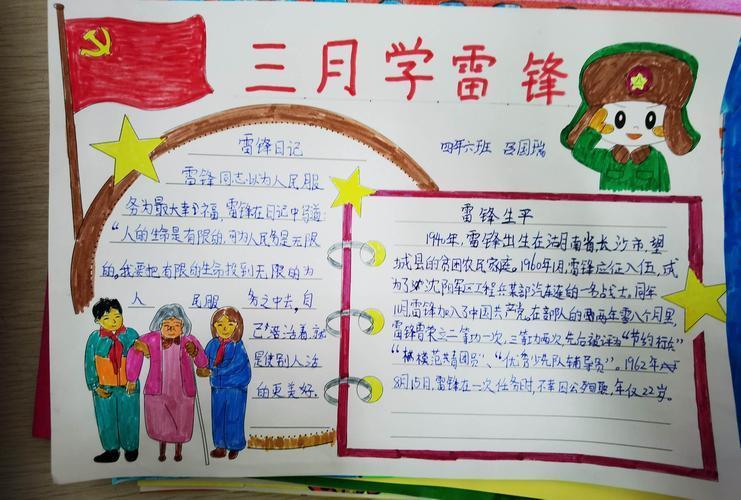 三月学雷锋
四年六班 国瑞
雷锋日记
雷锋同志以为人民服
务为最大幸福,雷锋在日记中写道:
“人的生命是有限的,可为人民务是无限
的,我要把有限的生命投到无限的为
人 民服 务之中去,自
己活着,就
是使别人活
的更美好.
雷锋生平
1940年,雷锋出生在湖南省长沙市望
城县的贫困农民家庭。1960年1月,雷锋应征入伍,成
为了沈阳军区工程兵某部汽车连的一名战士。同年
11月雷锋加入了中国共产党。在部队的两年零八个月里,
雷锋荣立二等功一次,三等功两次,先后被评为“节约标兵”
“模范共青团员”、“优秀少先队辅导员”。1962年
8月15日,雷锋在一次任务时,不幸因公殉职,年仅22岁。